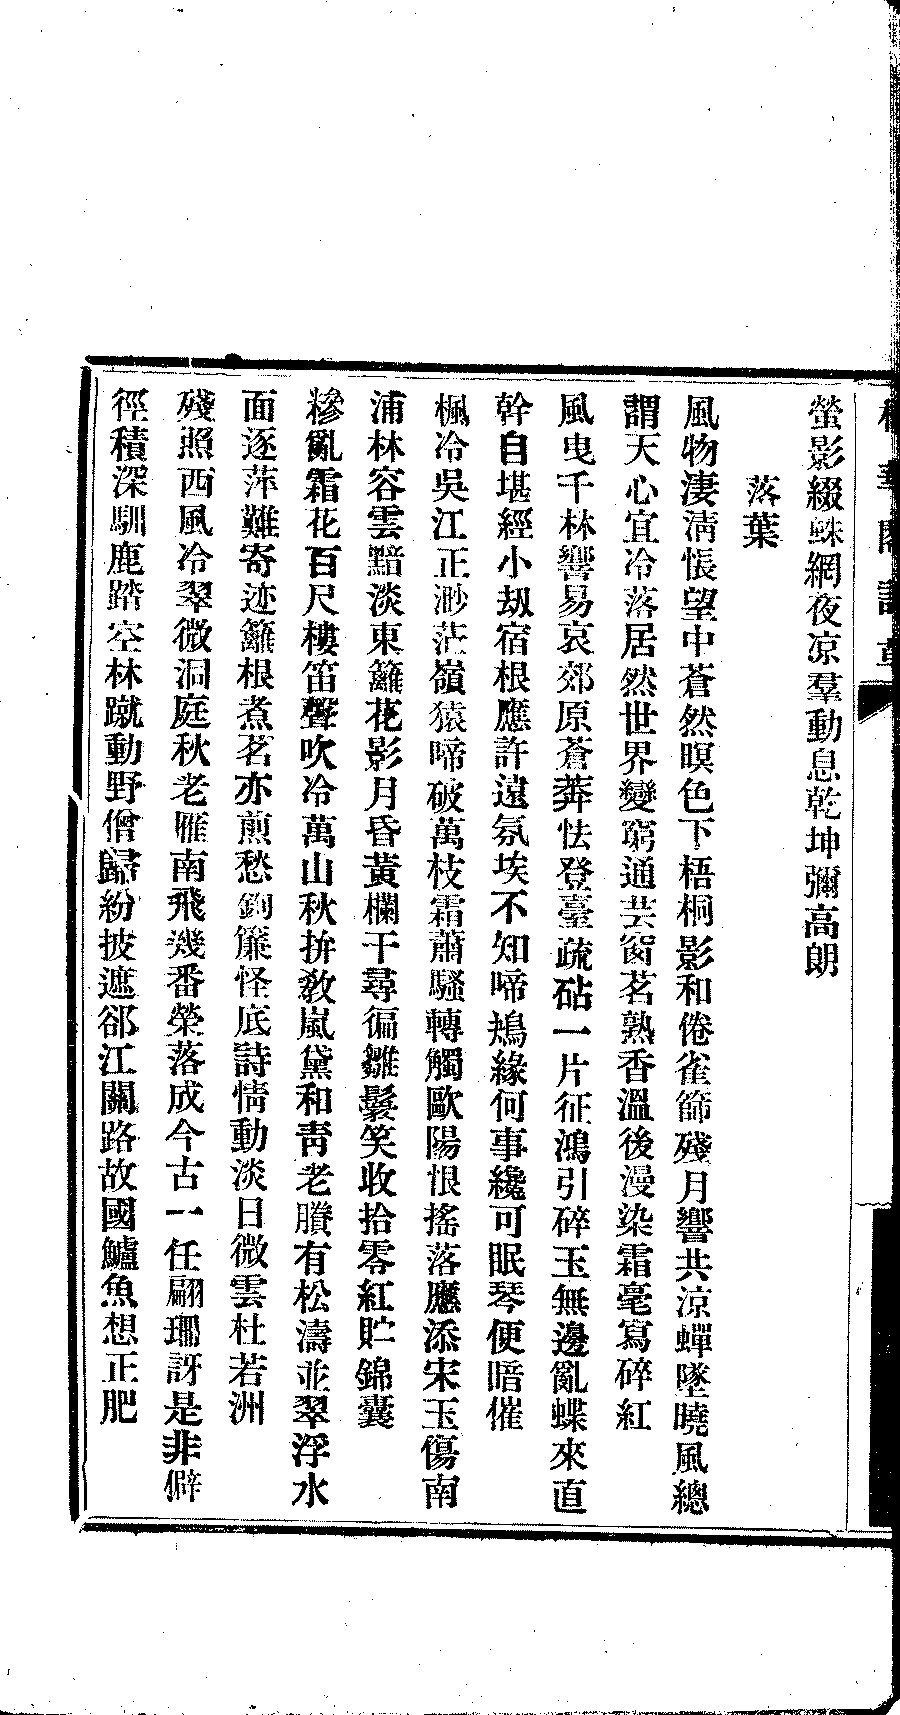 螢影綴蛛網夜凉羣動息乾坤彌高朗
落葉
風物淒淸悵望中蒼然暝色下梧桐影和倦雀篩殘月響共涼蟬墜曉風總
謂天心宜冷落居然世界變窮通芸窗茗熟香溫後漫染霜毫寫碎紅
風曳千林響易哀郊原蒼莽怯登臺疏砧一片征鴻引碎玉無邊亂蝶來直
幹自堪經小刼宿根應許遠氛埃不知啼鴂緣何事纔可眠琴便暗催
楓冷吳江正渺茫嶺猿啼破萬枝霜蕭騷轉觸歐陽恨搖落應添宋玉傷南
浦林容雲黯淡東籬花影月昏黃欄干尋徧雛鬟笑收拾零紅貯錦囊
糝亂霜花百尺樓笛聲吹冷萬山秋拚敎嵐黛和靑老賸有松濤並翠浮水
面逐萍難寄迹籬根煮茗亦煎愁鉤簾怪底詩情動淡日微雲杜若洲
殘照西風冷翠微洞庭秋老雁南飛幾番榮落成今古一任翩珊訝是非僻
徑積深馴鹿踏空林蹴動野僧歸紛披遮郤江關路故國鱸魚想正肥